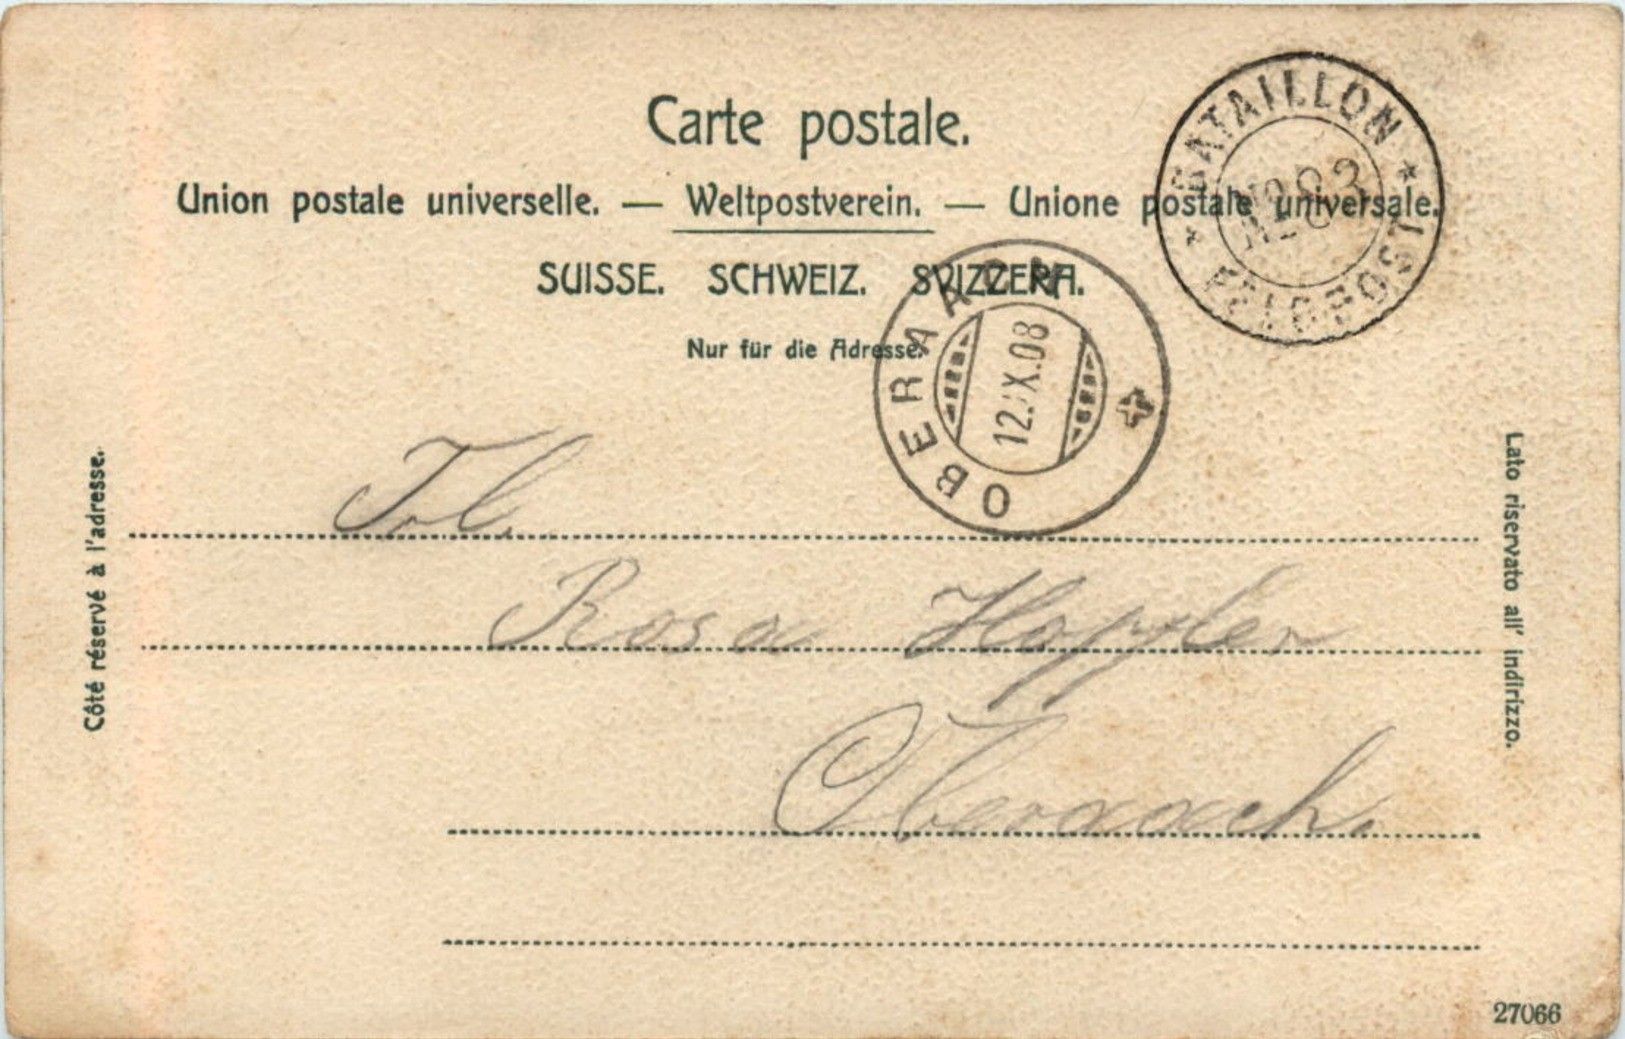 Carte postale.
Union postale universelle. — Weltpostverein. — Unione postale universale.
SUISSE. SCHWEIZ. SVIZZERA.
Nur für die Adresse.
BATAILLON
No 83
FELDPOST
OBERAACH
12.IX.08
Côté réservé à l'adresse.
Lato riservato all' indirizzo.
Frl.
Rosa Hopfler
Oberaach.
27066